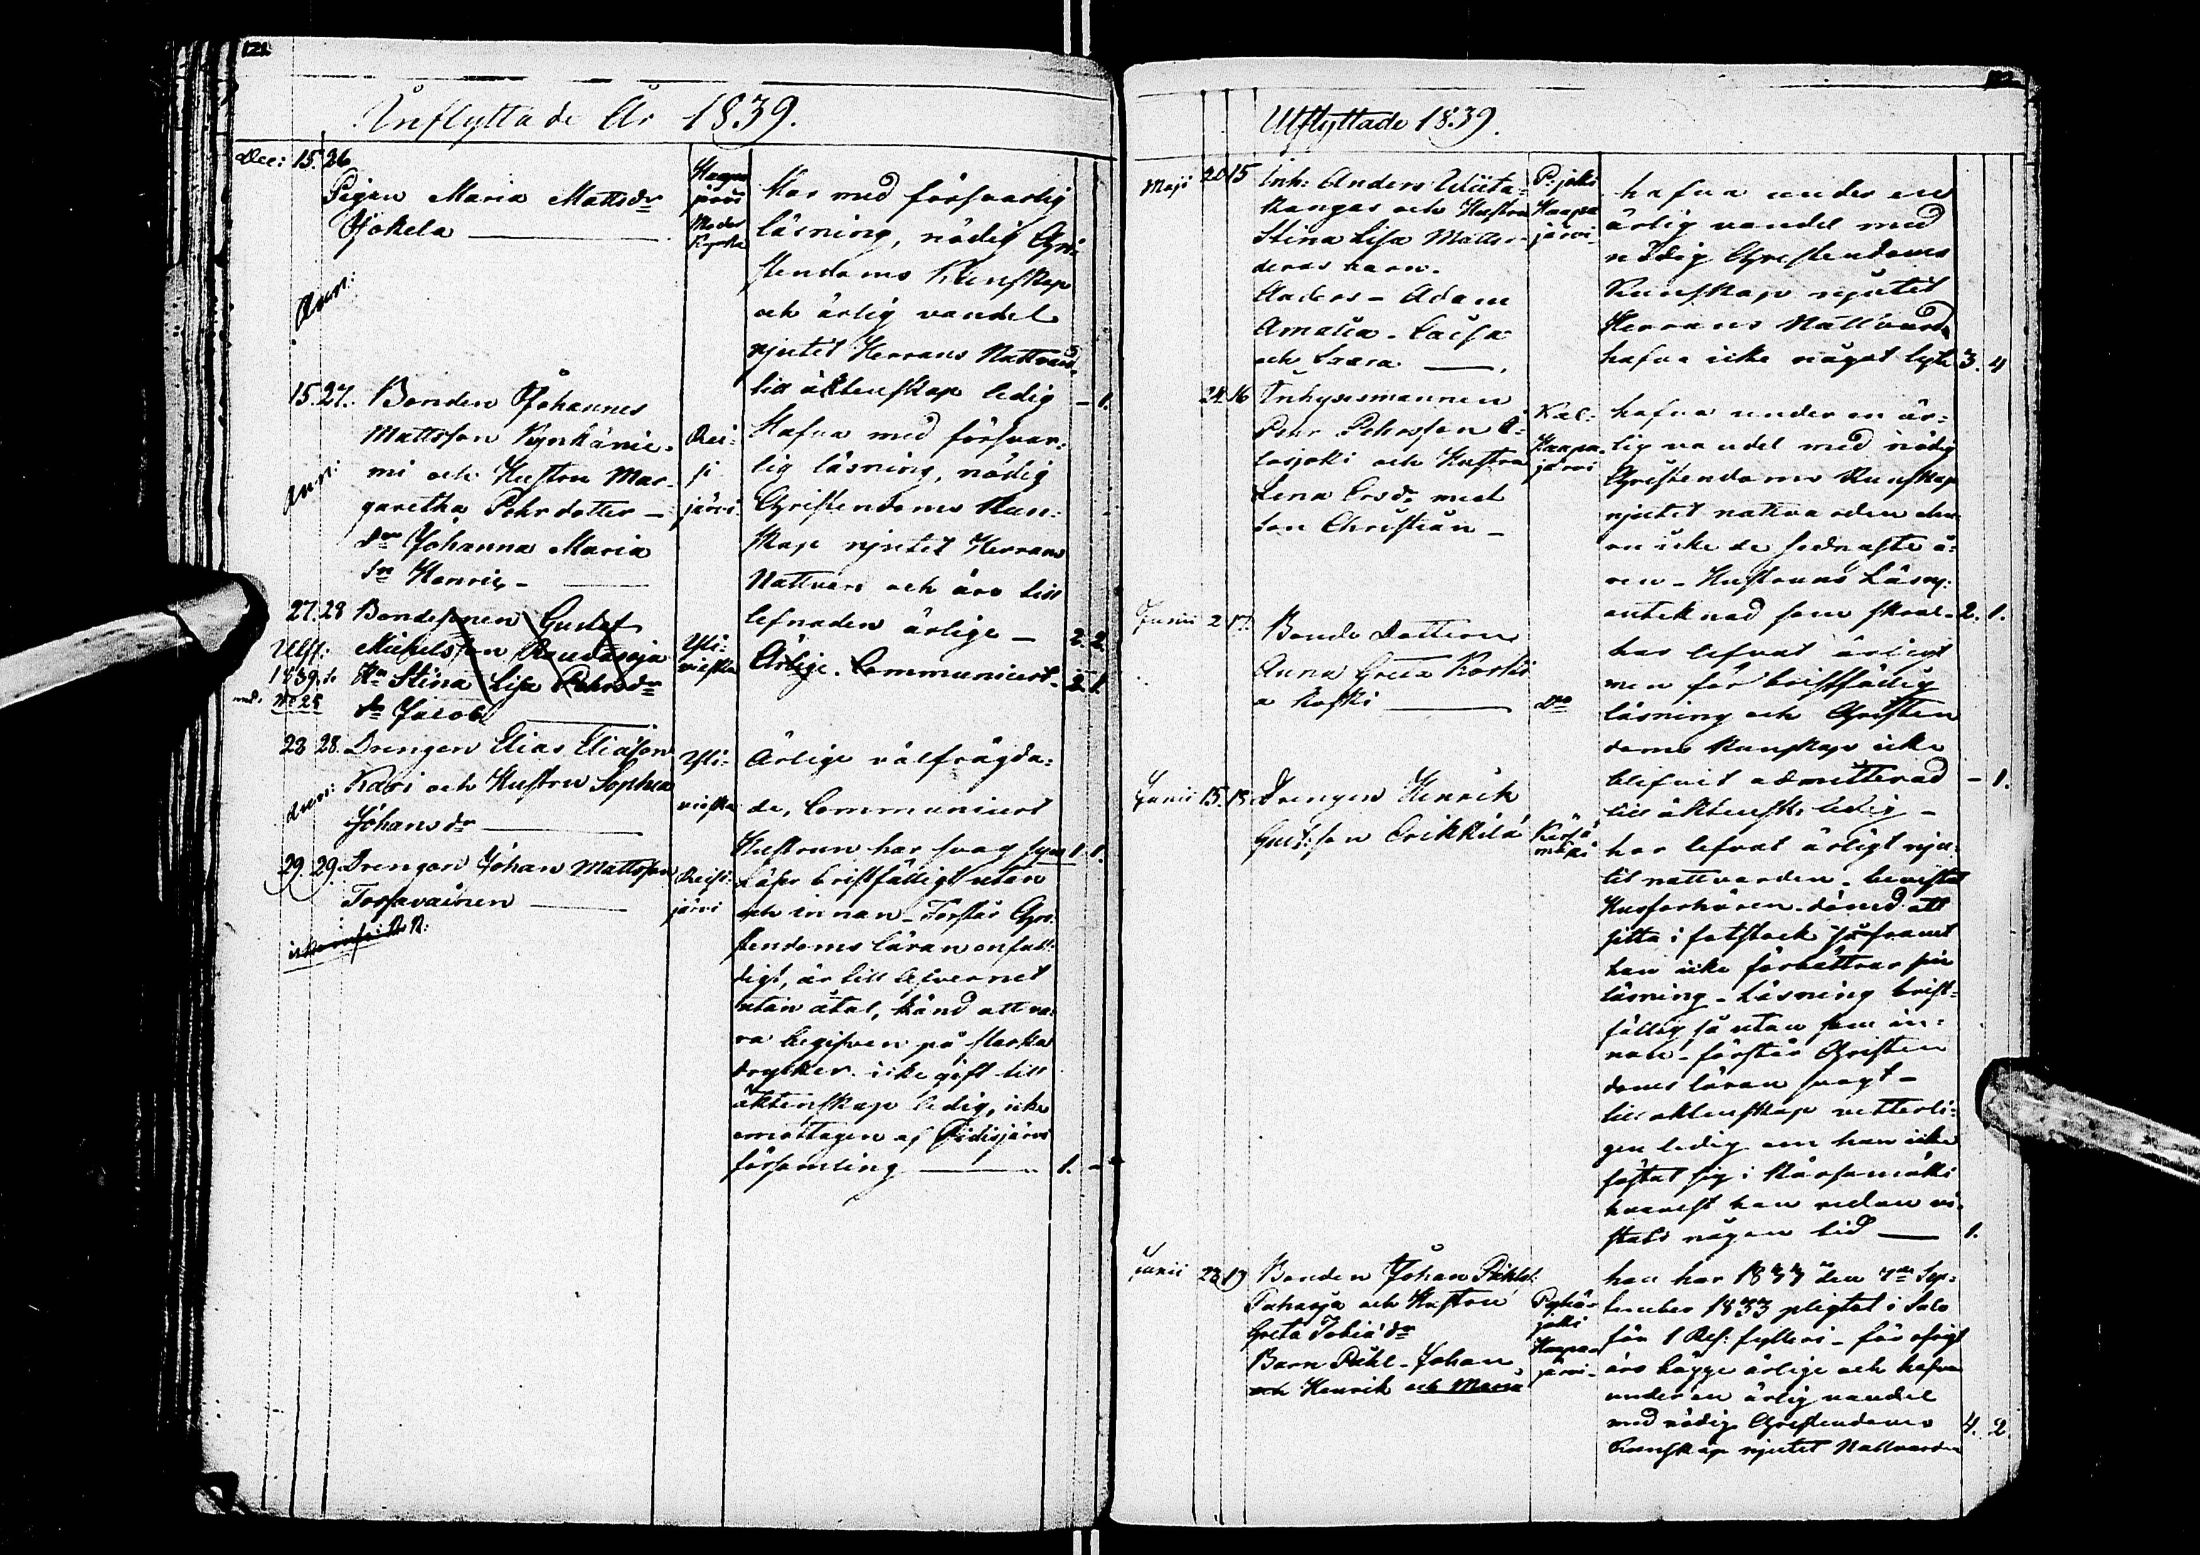 121
Inflyttade År 1839.
Dec: 15. 26
Pigan Maria Mattsdr
Jokela
Haapa
järvi
Moder
Kyrka
Har med försvarlig
läsning, nödig Chri-
stendoms Kunskap
och ärlig vandel
njutit Herrans Nattvard
till äktenskap ledig - 1.
Ann:
15. 27. Bonden Johannes
Mattsson Kynkänie-
mi och Hustru Mar-
garetha Pehrdotter -
dr Johanna Maria
sn Henric -
Ann:
Rei-
si
järvi
Hafva med försvar-
lig läsning, nödig
Christendoms Kun-
skap njutit Herrans
Nattvard och äro till
lefnaden ärlige - 2. 2.
27. 28 Bondesonen Gustaf
Michelsson
Hu Stina Lisa Pehrsdr
sn Jacob
Utfl:
1839
No 25
Yli-
vieska
Ärlige. Communicert. 2. 1.
28 28. Drengen Elias Eliasson
Kari och Hustru Sophia
Johansdr
Ann:
Yli-
vieska
Ärlige välfrägda-
de, Communicert
Hustrun har svag syn 1. 1.
29. 29. Drengen Johan Mattsson
Tossavainen
Reisi-
järvi
Läser bristfälligt utan
och innan - Förstår Chri-
stendoms läran enfal-
digt, är till lefvernet
utan åtal, känd att va-
ra begifven på starka
drycker. icke gift till
äktenskap ledig, icke
emottagen af Pidisjärvi
församling 1. -
Utflyttade 1839.
Maji 20 15 Inh: Anders Wiita-
kangas och Hustru
Stina Lisa Matts-
deras barn.
Anders - Adam
Amalia - Caisa
och
P:joki
Haapa
järvi
hafva under en
ärlig vandel med
nödig Christendoms
Kunskap njutit
Herrans Nattvard
hafva icke något lyte 3. 4
24. 16 Inhysesmannen
Pehr Pehrsson O-
losjoki och Hustru
Lena Ersdr med
son Christian -
Kal-
Haapa-
järvi
hafva under en är-
lig vandel med nödig
Christendoms Kunskap
njutit nattvarden
icke de sednaste å-
ren - Hustruns Läsn:
antecknad som skral - 2. 1.
Junii 2 17. Bonde Dottern
Anna Greta Koski
a Koski
do
har lefvat ärligt
men för bristfällig
läsning och Christen
doms Kunskap icke
blifvit admitterad - 1.
till äktensk: ledig -
Junii 15. 18. Drengen Henrik
Gust:son Erikkilä
Kärsä
mäki
har lefvat ärligt nju-
tit nattvarden - bevistat
Husförhören. dömd att
sitta i fotstock så framt
han icke förbättrar sin
läsning - Läsning brist-
fällig så utan som in-
nan - förstår Christen
doms läran svagt -
till äktenskap vetterli-
gen ledig om han icke
fästat sig i Kärsamäki
hvarest han redan vi-
stats någon tid 1.
Junii 23 19 Bonden Johan Pehls:
och Hustru
Greta Tobiædr
Barn Pehl - Johan
och Henrik och Maria
Pyhä-
joki
Haapa-
järvi
han har 1833 den 7de Sep-
tember 1833 pligtat i Salo
för 1 Res: fylleri - för öfrigt
äro bägge ärlige och hafva
under en ärlig vandel
med nödig Christendoms 4. 2
Kunskap njutit Nattvarden